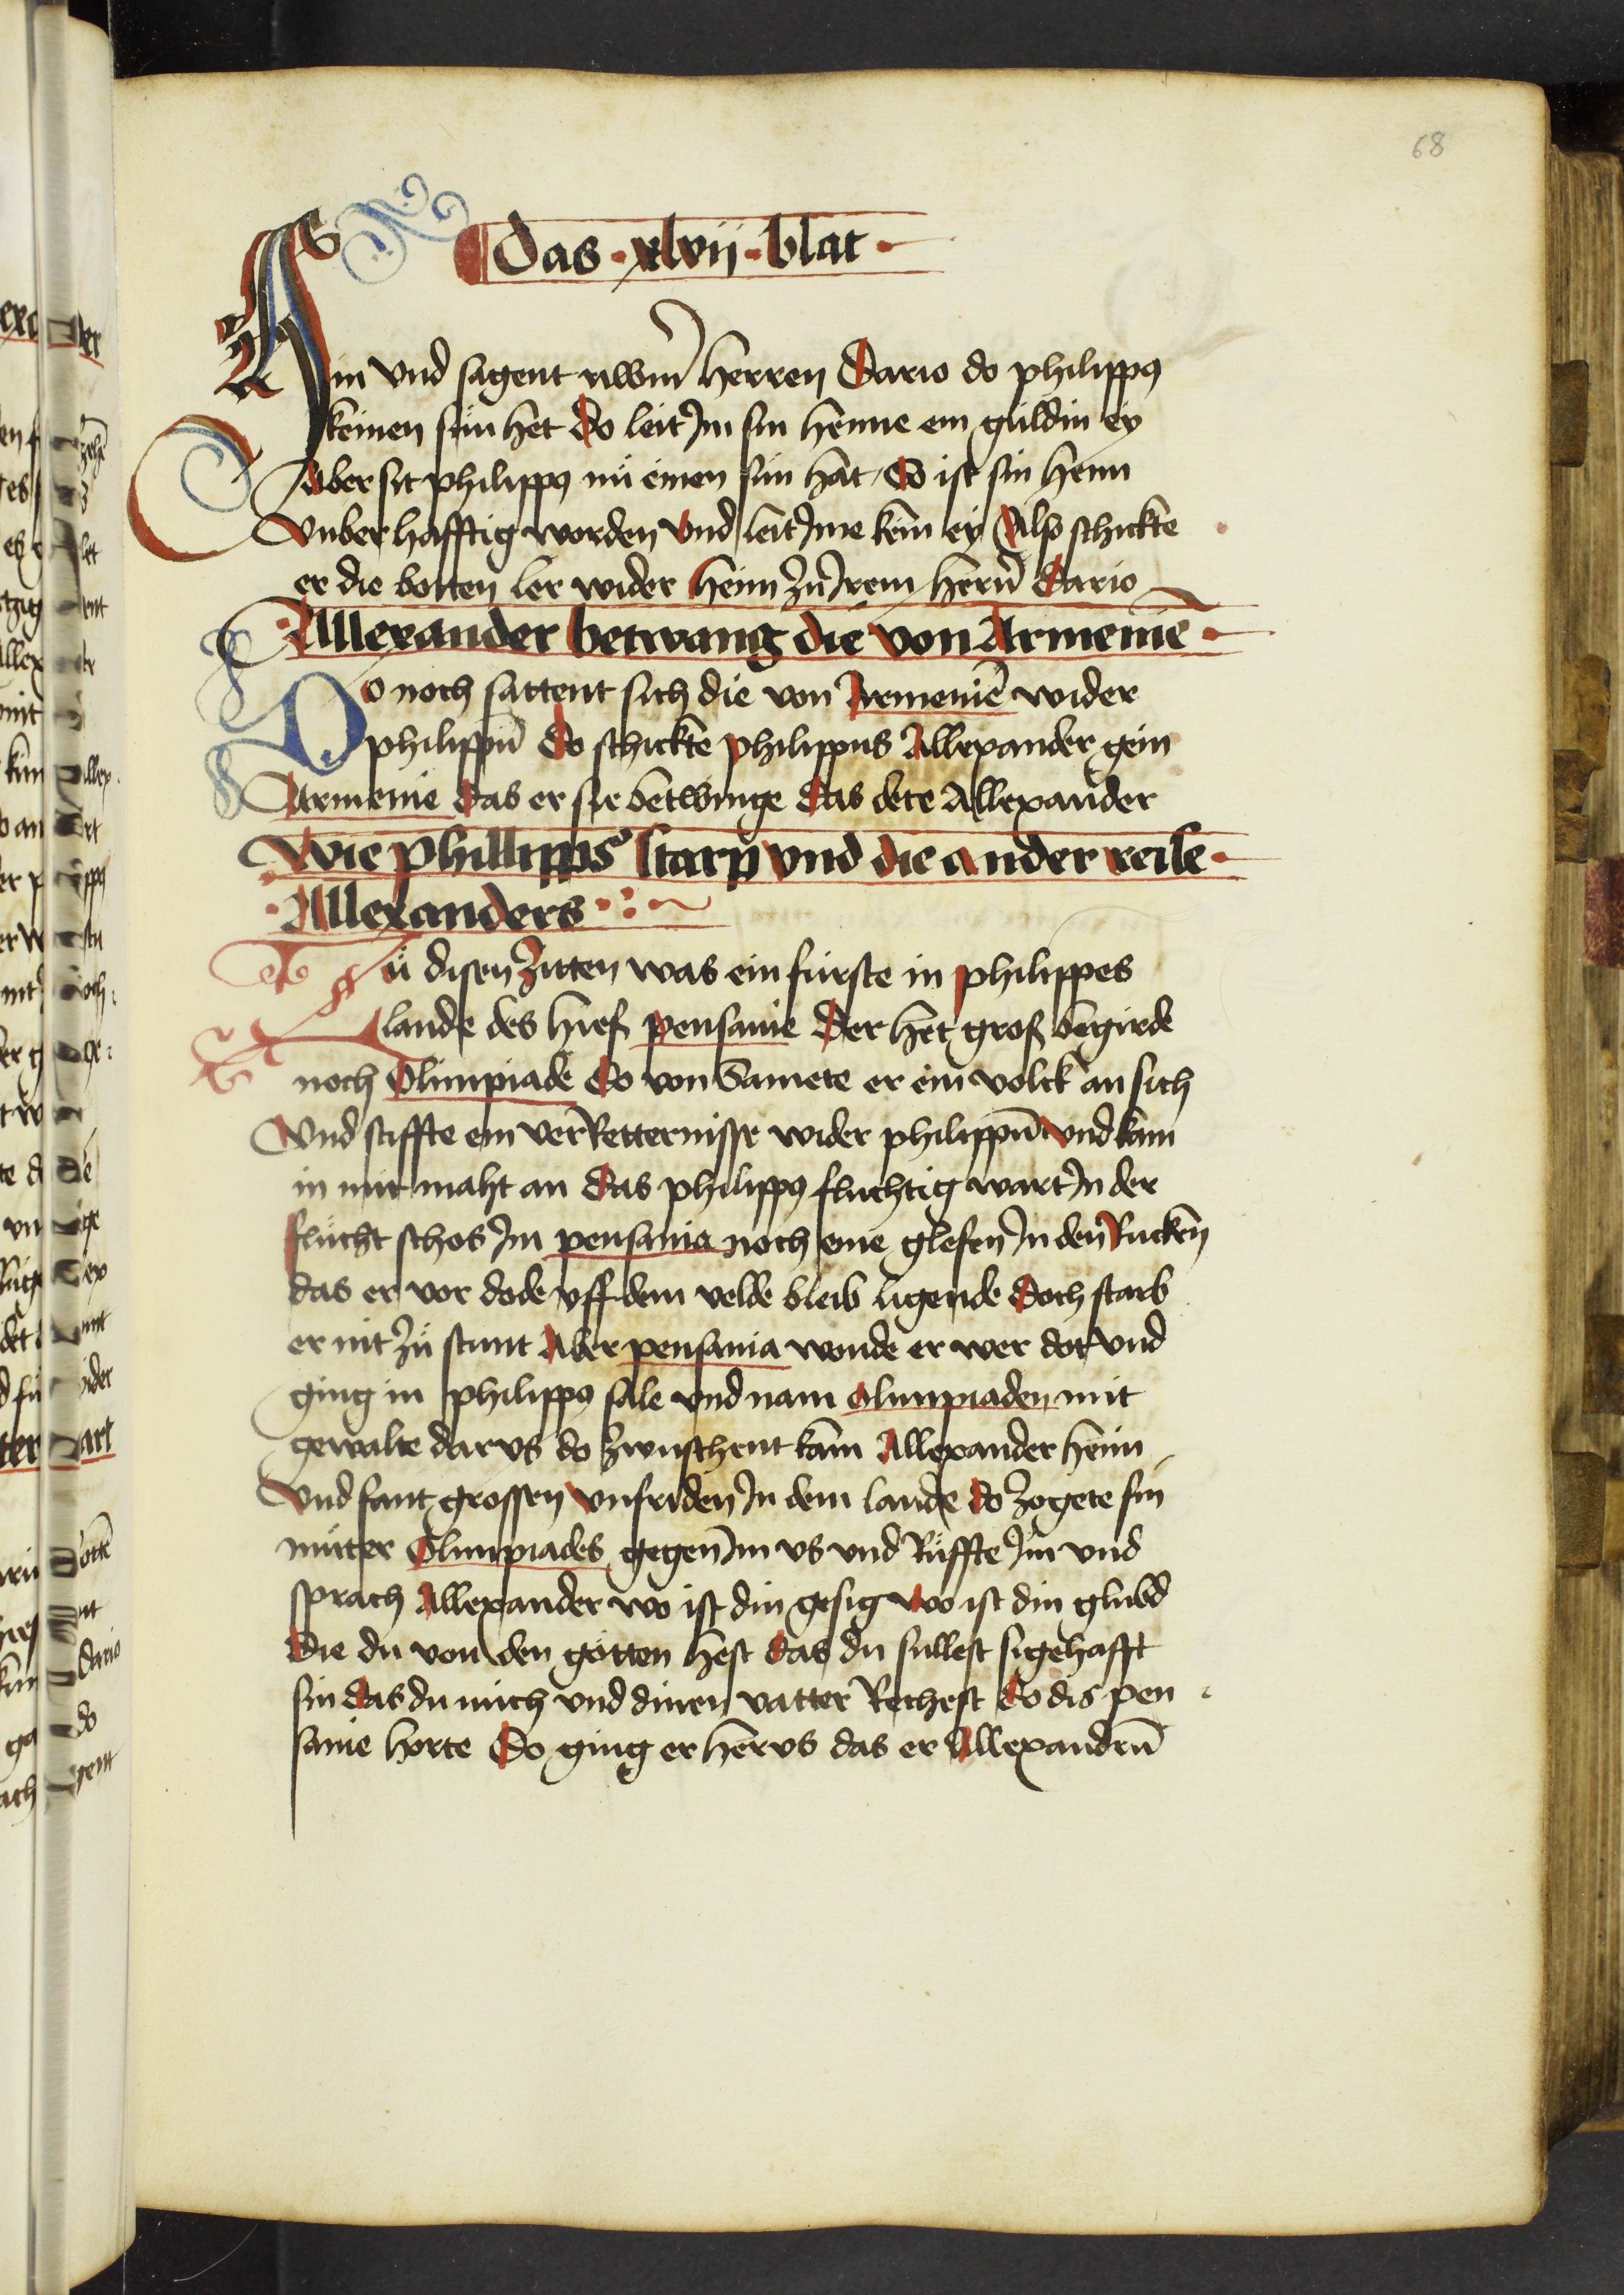 68
Das · xlvii · blat ·
in vnd sagent uwerm herren Dario do philippus
keinen sun het Do leit Im sin henne ein guldin ey
Aber sit philippus nü einen sün hat / So ist sin henn
vnberhafftig worden vnd leit Ime kein ey Also schickte
er die botten ler wider heim zu Irem hern Dario
Allexander betwang die von Armenie ·
Do noch sattent sich die von Armenie wider
philippū Do schickte philippus Allexander gein
Armenie das er sie betwinge das dete Allexander
Wie phillippus starp vnd die ander reise ·
· Allexanders ·:·~
Zü disen Zitten was ein fürste in philippes
lande des hieß pensanie Der het groß begirde
noch Olimpiade Do von samete er ein volck an sich
Vnd stiffte ein verRetternisse wider philippū vnd kam
in mit maht an das philippus fluchtig wart In der
flucht schos Im pensania noch eine glefen In den Rucken
das er vor dode vff dem velde bleib ligende Doch starb
er nit zü stunt Aber pensania wonde er wer dot vnd
ging in philippus sale vnd nam olimpiaden mit
gewalte dar vs do zwuschent kam Allexander heim
Vnd fant grossen vnfriden In dem lande do Zogete sin
mütter Olimpiades gegen Im vs vnd Rüffte Im vnd
sprach Allexander wo ist din gesig wo ist din glubd
Die du von den götten hest das du sullest sigehafft
sin das du mich vnd dinen vatter Rechest Do dis pen
sanie horte Do ging er her vs das er Allexandrū